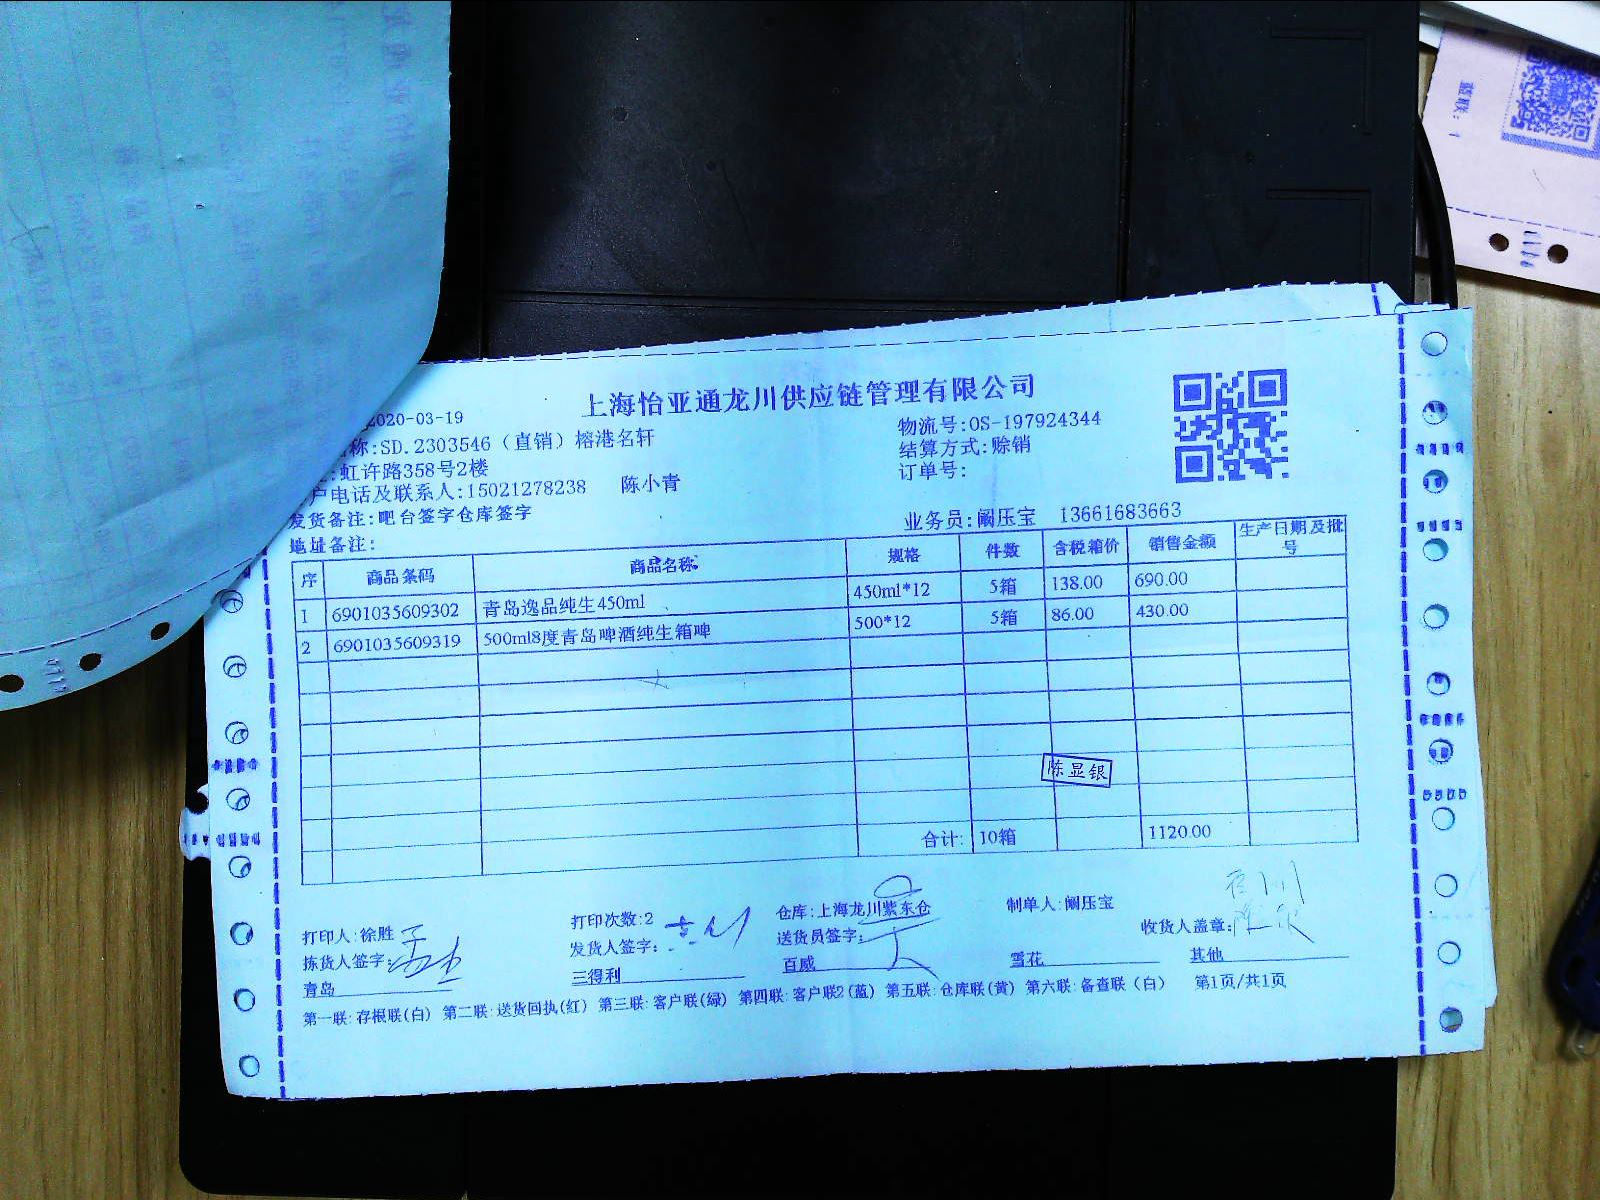 上海怡亚通龙川供应链管理有限公司
2020-03-19
称:SD.2303546（直销）榕港名轩
物流号:OS-197924344
虹许路358号2楼
结算方式:赊销
户电话及联系人:15021278238 陈小青
订单号:
发货备注:吧台签字仓库签字
业务员:阚压宝 13661683663
地址备注:
序 商品条码 商品名称 规格 件数 含税箱价 销售金额 生产日期及批号
1 6901035609302 青岛逸品纯生450ml 450ml*12 5箱 138.00 690.00
2 6901035609319 500ml8度青岛啤酒纯生箱啤 500*12 5箱 86.00 430.00
陈显银
合计: 10箱 1120.00
打印人:徐胜 打印次数:2 仓库:上海龙川紫东仓 制单人:阚压宝
拣货人签字: 发货人签字: 送货员签字: 收货人盖章:
青岛 三得利 百威 雪花 其他
第一联:存根联(白) 第二联:送货回执(红) 第三联:客户联(绿) 第四联:客户联2(蓝) 第五联:仓库联(黄) 第六联:备查联（白） 第1页/共1页